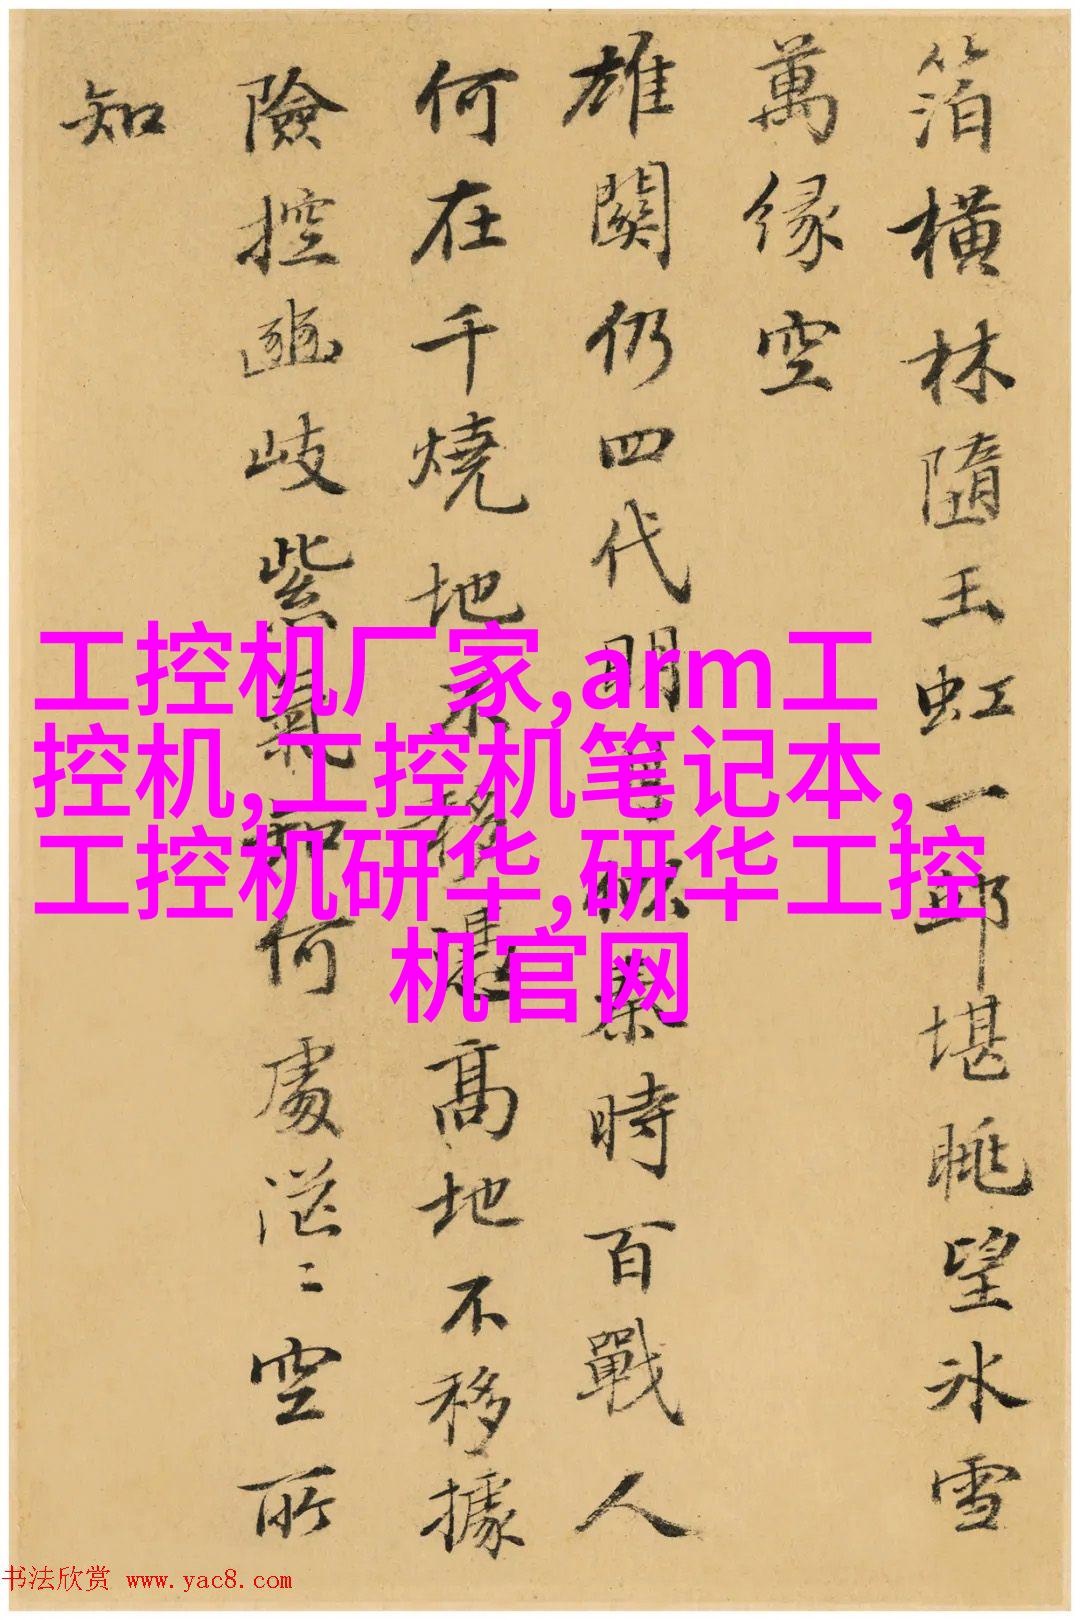 箔橫林隨玉虹一邱堪眺望冰雪
萬緣空
雄關仍四代明月秦時百戰人
何在千燒地不移憑高地不移據
險控豳岐紫氣知何處茫〻空所
知
工控机厂家,arm工
控机,工控机笔记本,
工控机研华,研华工控
机官网
书法欣赏 www.yac8.com